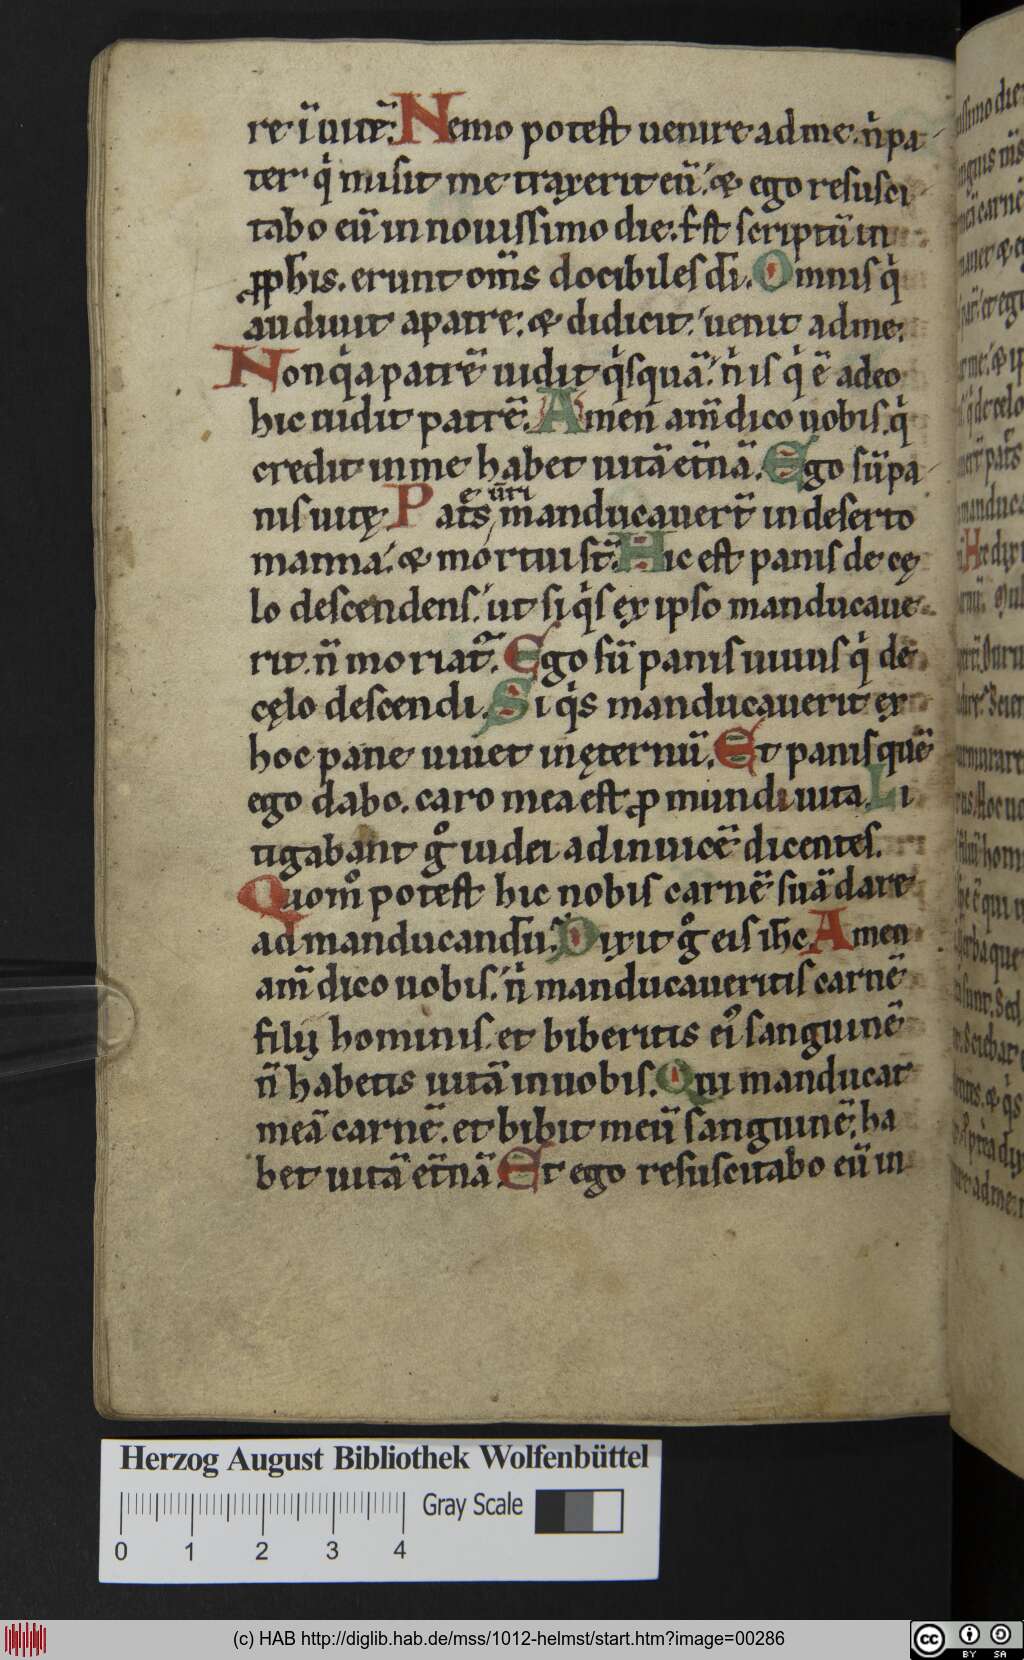 re i̅ uice̅. Nemo potest uenire ad me. n̍ pa
ter. q̍ misit me traxerit eu̅. & ego resusci
tabo eu̅ in nouissimo die. e̅st scriptu̅ in
p̱ph̅is. erunt om̅s docibiles di̅. Omnis q̍
audiuit a patre. & didicit. uenit ad me.
Non q̍a patre̅ uidit q̍squa̅. n̍ is q̍ e̅ a deo
hic uidit patre̅. Amen am̅ dico uobis. q̍
credit in me habet uita̅ et̅na̅. Ego su̅ pa
nis uitę. Pat̅s ur̅i manducauert̅ in deserto
manna. & mortui st̅. Hic est panis de cę
lo descendens. ut si q̍s ex ipso manducaue
rit. n̅ moriat᷑. Ego su̅ panis uiuus q̍ de
cęlo descendi. Si q̍s manducauerit ex
hoc pane uiuet in ęternu̅. Et panis que̅
ego dabo. caro mea est ꝓ mundi uita. Li
tigabant gͦ iudei adinuice̅ dicentes.
Quom̊ potest hic nobis carne̅ sua̅ dare
ad manducandu̅. Dixit gͦ eis ih̅c. Amen
am̅ dico uobis. n̍ manducaueritis carne̅
filij hominis. et biberitis ei᾽ sanguine̅
n̅ habetis uita̅ in uobis. Qui manducat
mea̅ carne̅. et bibit meu̅ sanguine̅. ha
bet uita̅ et̅na̅. Et ego resuscitabo eu̅ in
Herzog August Bibliothek Wolfenbüttel
Gray Scale
0 1 2 3 4
(c) HAB http://diglib.hab.de/mss/1012-helmst/start.htm?image=00286
cc BY SA